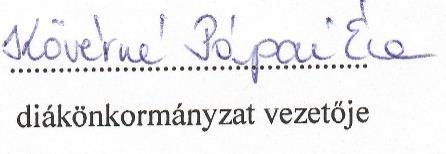 Kövérné Pápai Éva
diákönkormányzat vezetője